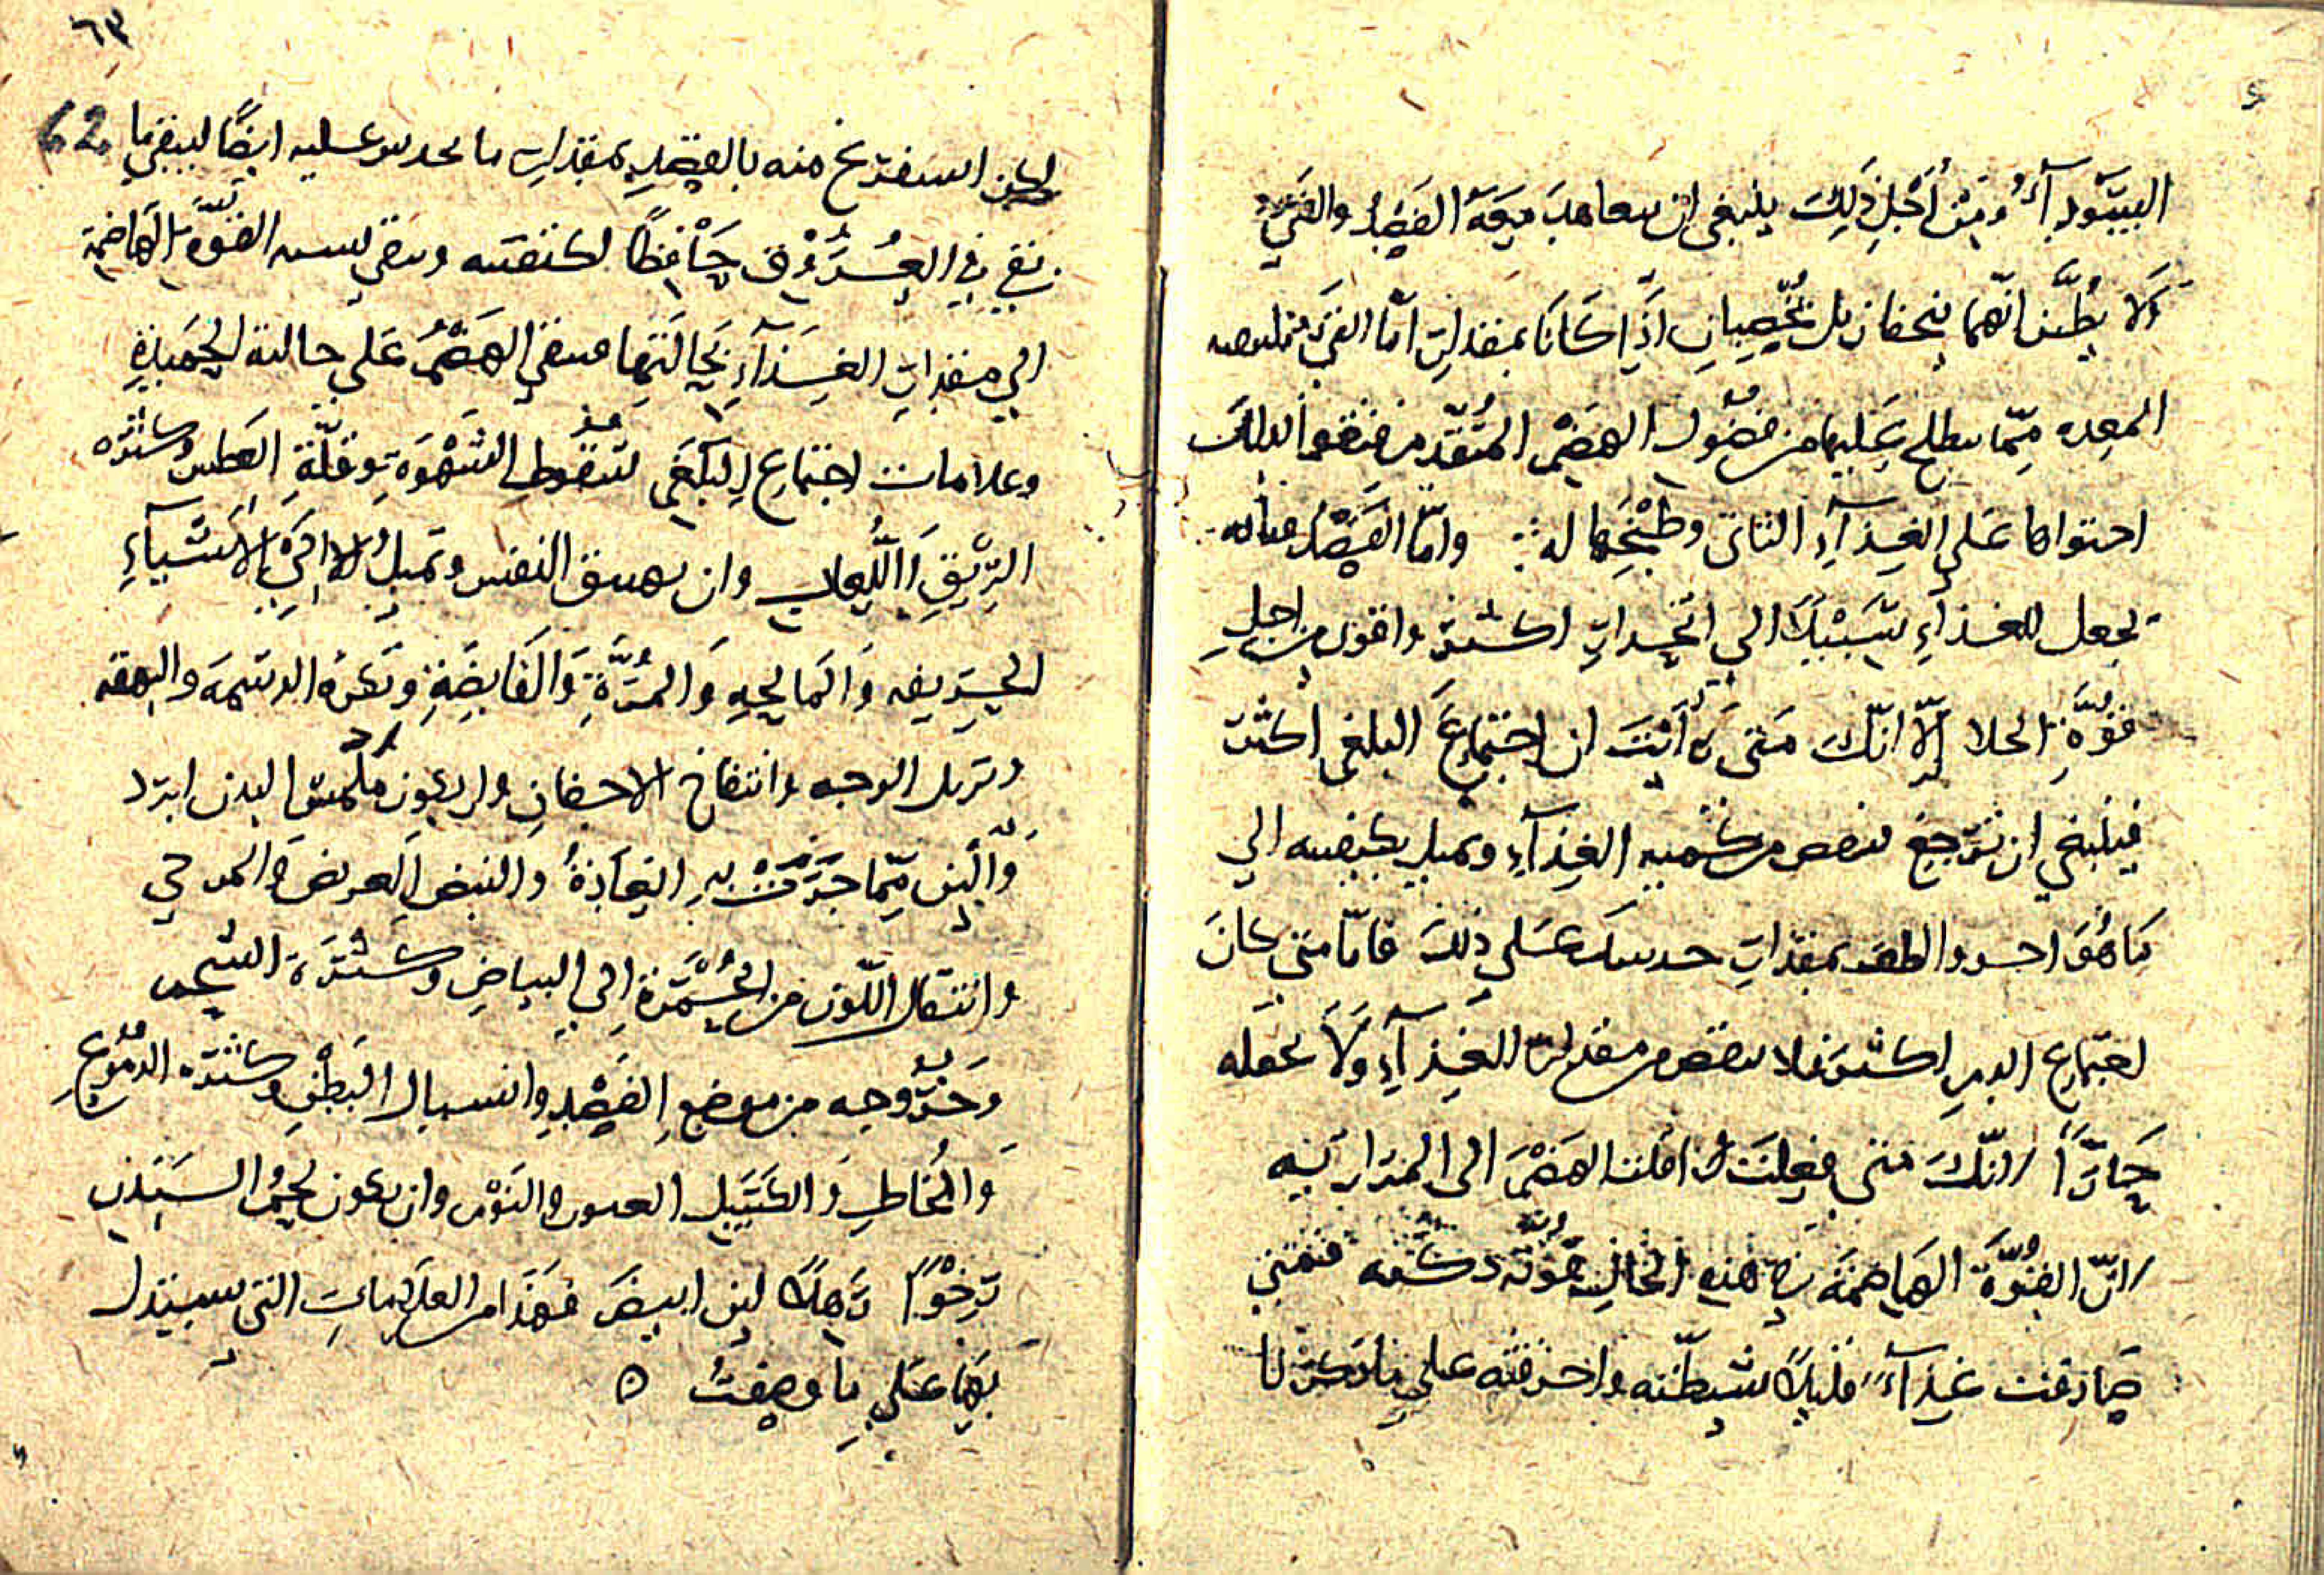 السوداء ومن أجل ذلك ينبغي ان يتعاهد معه الفصد والقيء
ولا يظن انهما ينحفان بل يخصبان اذا كانا بمقدار اما القيء
المعده مما يطلع عليها من فضول الهضم المتقدم
احتواها على الغذاء الثاني وطبخها له واما الفصد فانه
يجعل للغذاء سبيلا الي انحدار اكثر واقول من اجل
قوة انك متى رأيت ان اجتماع البلغم اكثر
فينبغي ان ينقص من كمية الغذاء وتميل بكيفيته الي
ما هو احر والطف بمقدار حدسك على ذلك فاما متى كان
اجتماع الدم اكثر فلا ينقص من مقدار الغذاء ولا تجعله
حارا لانك متى فعلت املت الهضم الى المرار نيه
لان القوة الهاضمة في هذه الحال فمتى
صادفت غذاء قليلا شيطته واحرقته على ما ذكرنا
٦٣
62
لكن استفرغ منه بالفصد بمقدار ما تحدس عليه ايضا ليبقى ما
بقي في العروق حافظا لكيفيته القوة الهاضمة
الي مقدار الغذاء بحالتها فيبقى الهضم على حالته الحميدة
وعلامات اجتماع البلغم سقوط الشهوة وقلة العطش وكثرة
الريق واللعاب وان النفس وتميل الى الاشياء
الحريفه والمالحه والمزة والقابضة وتكره الدسمة والتفهه
وتربل الوجه وانتفاخ الاجفان وان يكون ملمس البدن ابرد
والين مما جرت به العادة والنبض العريض والموجي
وانتقال اللون من الحمرة الي البياض وكثرة الشحم
وخروجه من موضع الفصد وانسبال البطن وكثرة الدموع
والمخاط والكسل والنوم وان يكون لحم البدن
رخوا رهلا لين ابيض فهذا من العلامات التي يستدل
بها على ما وصفت ه